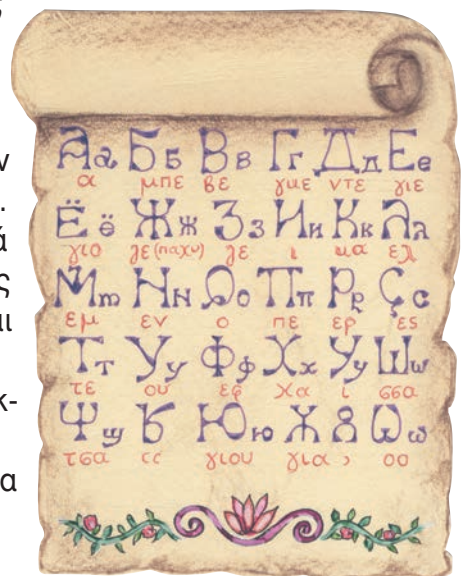 Аа Бб Вв Гг Дд Ее
α μπε βε γκε ντε γιε
Ёё Жж Зз Ии Кк Лл
γιο ζε (παχύ) ζε ι κα ελ
Мm Нн Оо Пп Рр Сс
εμ εν ο πε ερ ες
Тт Уу Фф Хх Уу Шш
τε ου εφ χα ι σσα
ς
ν
.
ά
ς
αι
κ-
α
τσα
γιου για οο